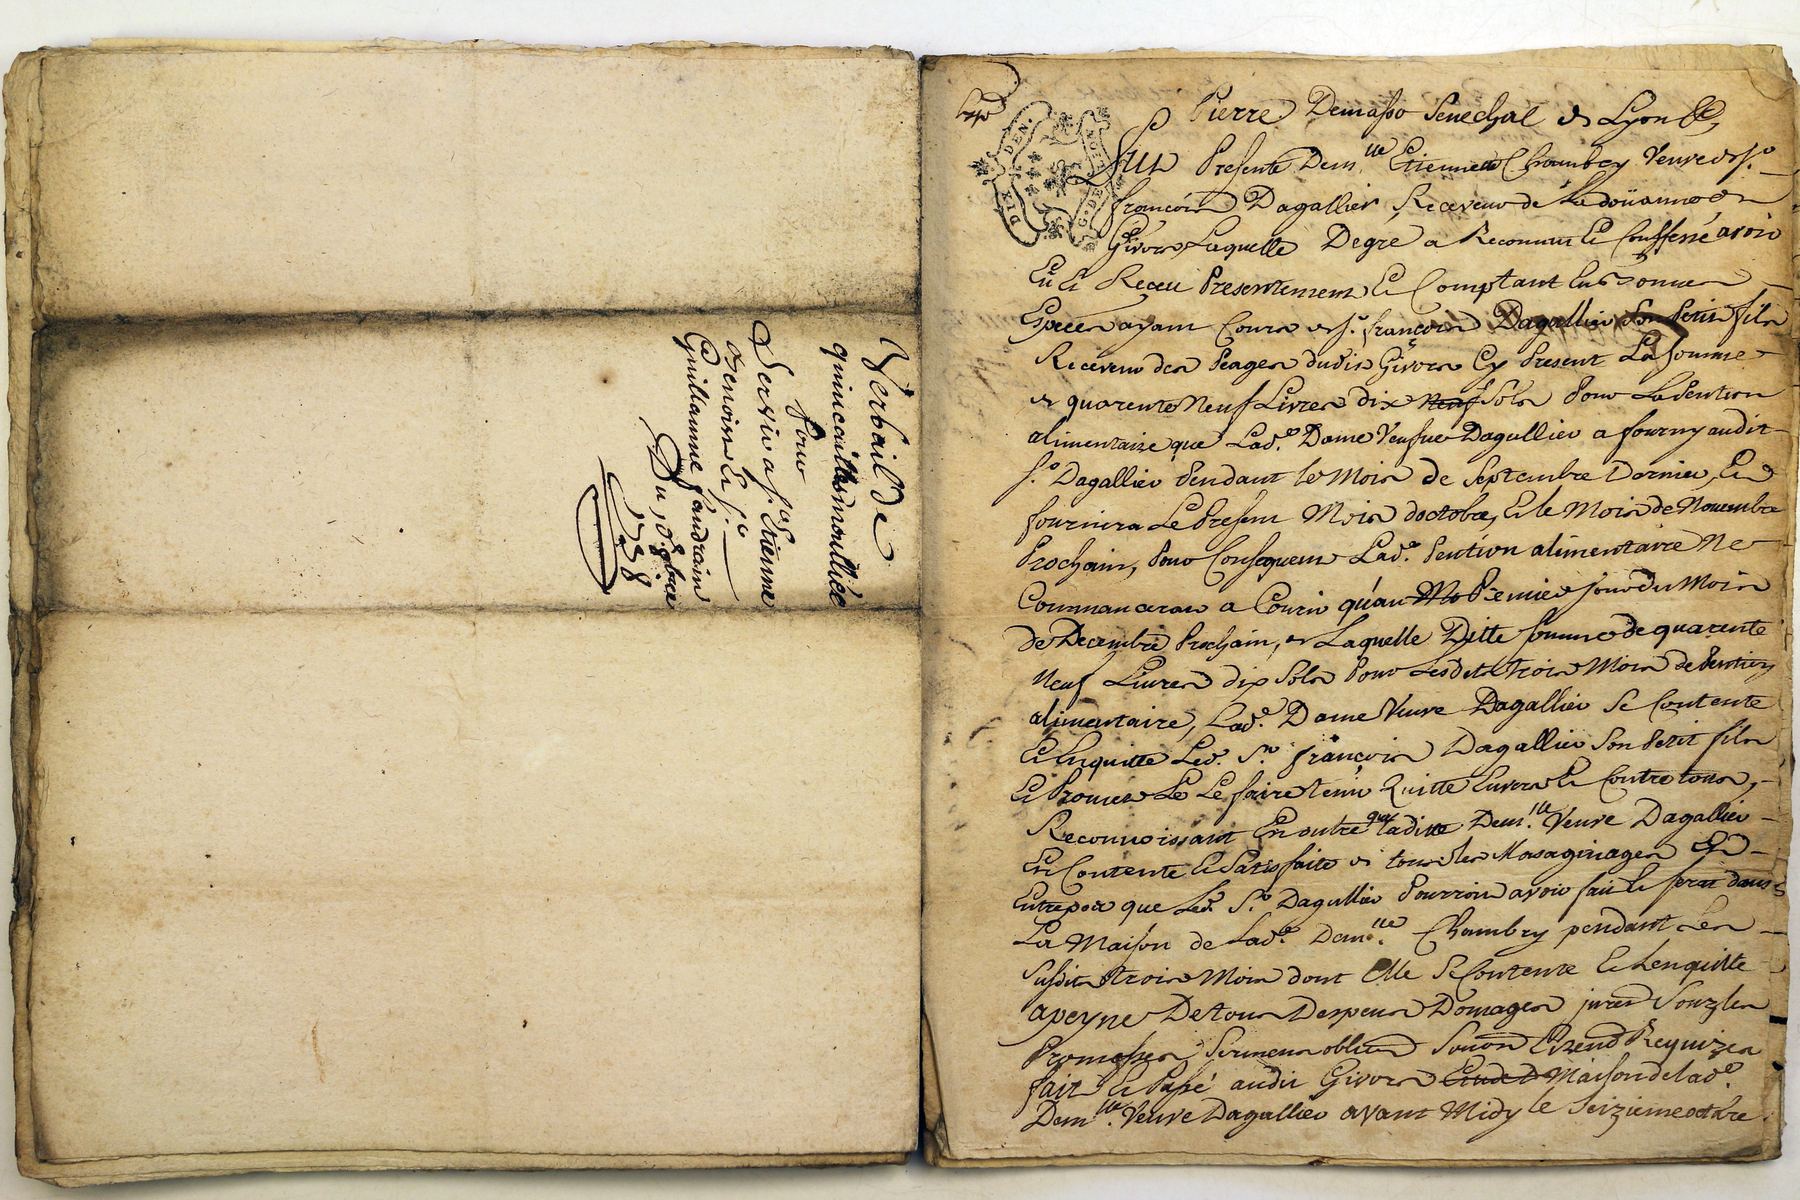 Verbail De
quincailles mouillée
pour
Servir a Sr. Etienne
Genoise et Sr.
Guillaume Jandrain
Du 10e 8bre
1738
DIX DEN.
G. DE
Pierre Demasso Senechal de Lyon &c,
fut Presente Demlle Etiennette Chambry Veuve de Sr.
françois Dagallier Receveur de La doüanne de
Givors Laquelle De gre a Reconnu Et Confessé avoir
Eü Et Receu Presentement Et Comptant En bonnes
Especes ayant Cours de Sr. françois Dagallier Son Petit fils
Receveur des Peages dudit Givors Cy Present La Somme
de quarente Neuf Livres dix neuf Sols Pour La Pention
alimentaire que Lade. Dame Veufue Dagallier a fourny audit
Sr. Dagallier Pendant le Mois de Septembre Dernier, Et
fournira Le Present Mois doctobre, Et le Mois de Novembre
Prochain, Pour Consequent Lade. Pention alimentaire Ne
Commancerat a Courir qu'au Premier jour du Mois
de Decembre Prochain, de Laquelle Ditte Somme de quarente
Neuf Livres dix Sols Pour Lesdits trois Mois de Pention
alimentaire, Lade. Dame Veuve Dagallier Se Contente
Et Enquitte Led. Sr. françois Dagallier Son Petit fils
Et Promet Le Le faire tenir Quitte Envers Et Contre tous,
Reconnoissant En outre que laditte Demlle. Veuve Dagallier
Est Contente Et Satisfaite de tous les Masaginages Et
Entrepos que Led. Sr. Dagallier Pourroit avoir fait Et ferat dans
La Maison de Lade. Demlle. Chambry pendant Les
Susdits trois Mois dont Elle Se Contente Et Lenquitte
a peyne De tous Despens Domages jures Souz Les
Promesses Serment oblion Soumon Et Renon Requizes
fait Et Passé audit Givors Maison de lade.
Demlle. Veuve Dagallier avant Midy le Seizieme octobre